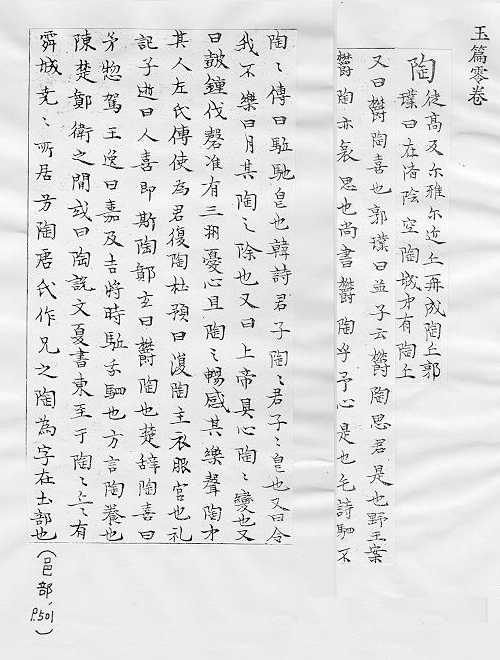 玉篇零卷
陶 徒高反尓雅尓近上再成陶上郭
璞曰在濟陰空陶城中有陶上
又曰欝陶喜也郭璞曰孟子云欝陶思君是也野王案
欝陶亦哀思也尚書欝陶乎予心是也毛詩駟不
陶〻傳曰駈馳皃也韓詩君子陶〻君子〻皃也又曰今
我不樂日月其陶〻除也又曰上帝具心陶〻變也又
曰皷鍾伐磬淮有三州憂心且陶〻暢感其樂聲陶中
其人左氏傳使為君復陶杜預曰復陶主衣服官也礼
記子逝曰人喜即斯陶鄭玄曰欝陶也楚辭陶喜曰
矛惣駕王逸曰嘉及吉將時駈乎駟也方言陶養也
陳楚鄭衛之間或曰陶説文夏書東至于陶〻上〻有
舜城尭〻所居旁陶唐氏作兄之陶為字在土部也
(邑部, P.501)